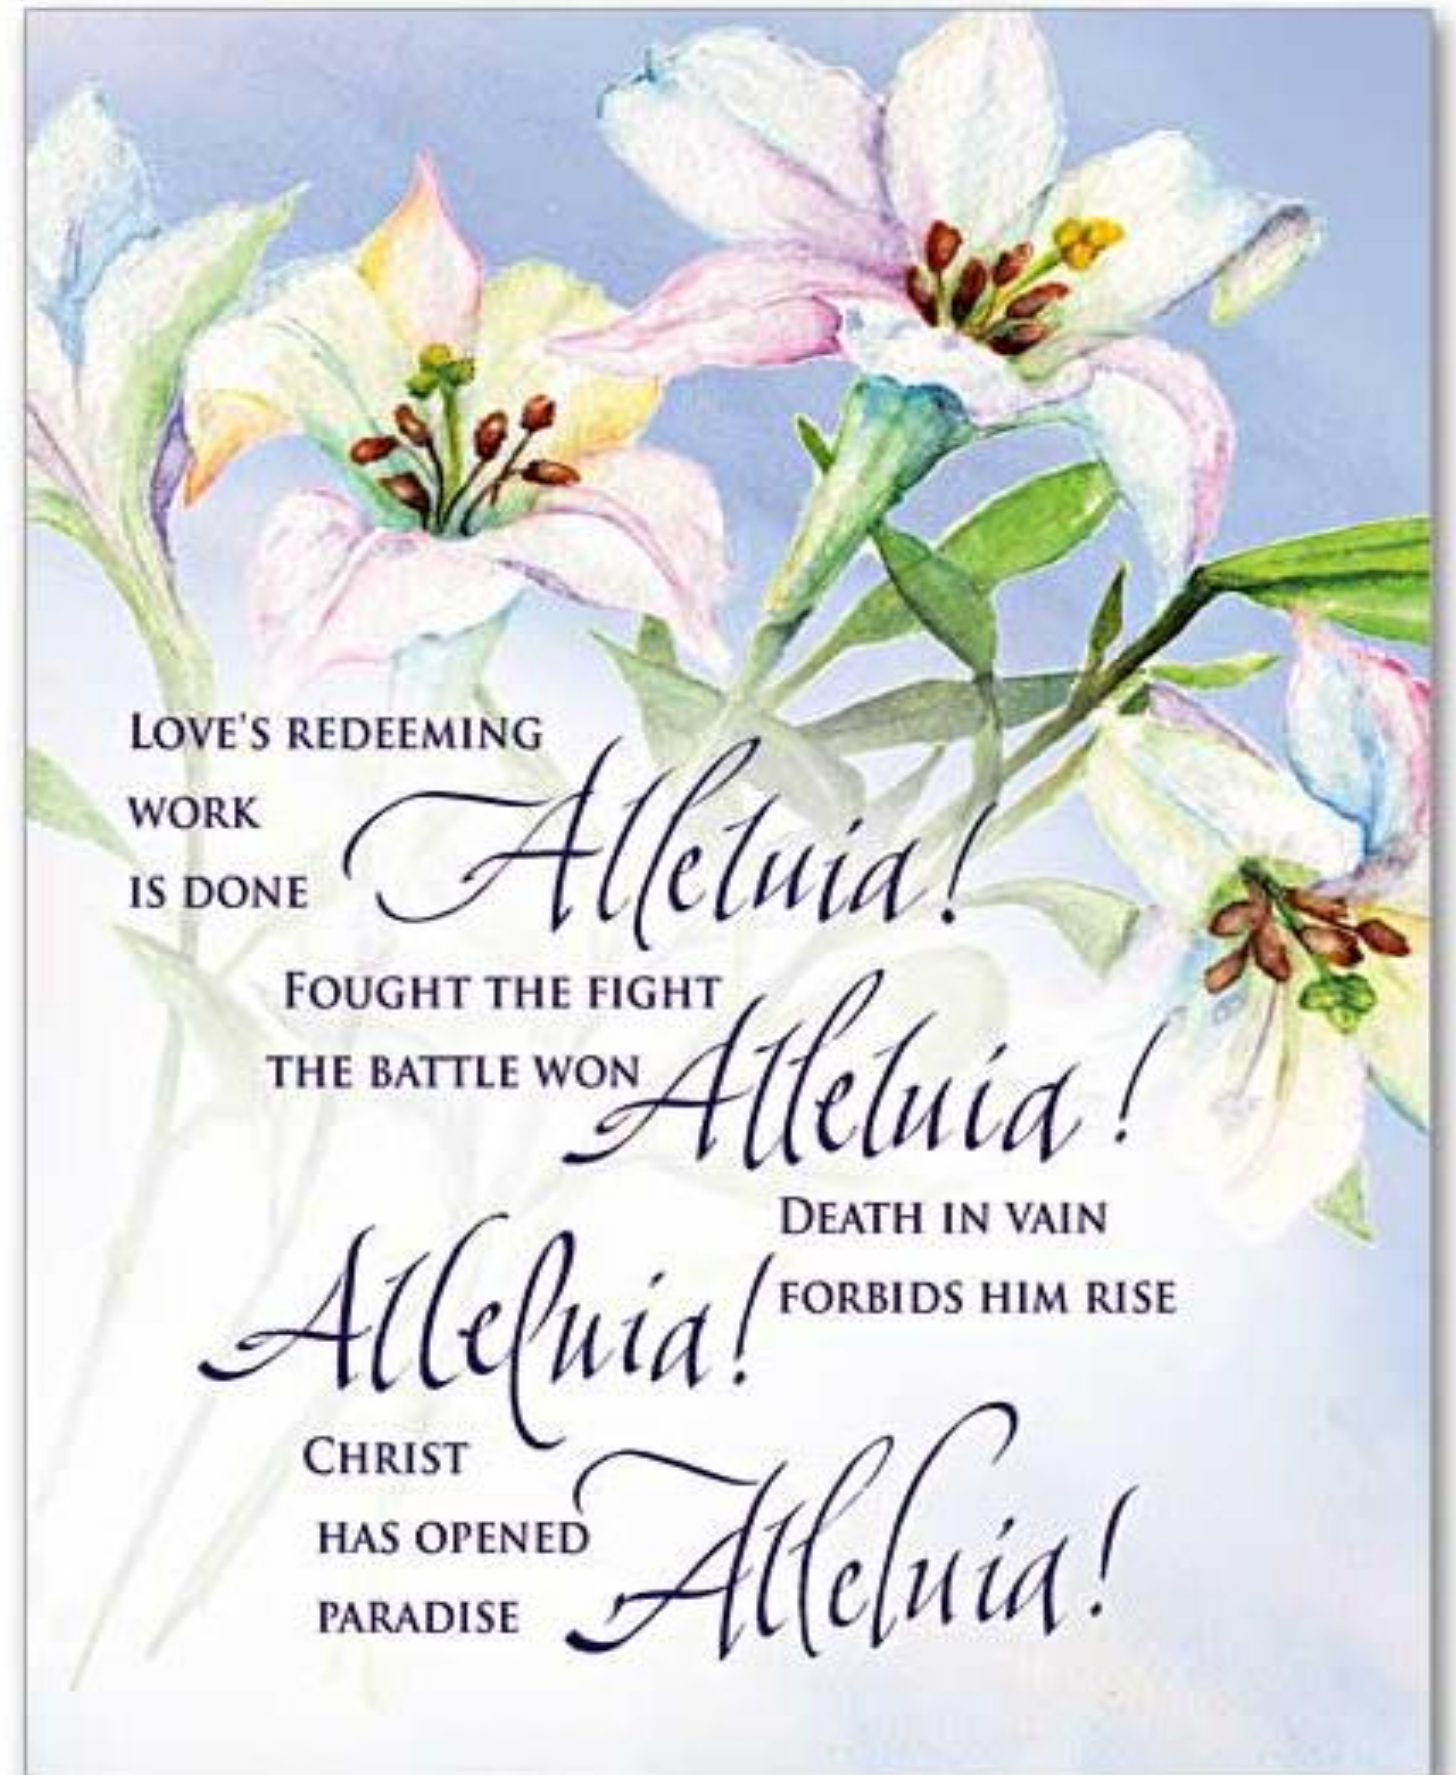 LOVE'S REDEEMING
WORK
IS DONE Alleluia!
FOUGHT THE FIGHT
THE BATTLE WON Alleluia!
DEATH IN VAIN
FORBIDS HIM RISE
Alleluia!
CHRIST
HAS OPENED
PARADISE Alleluia!